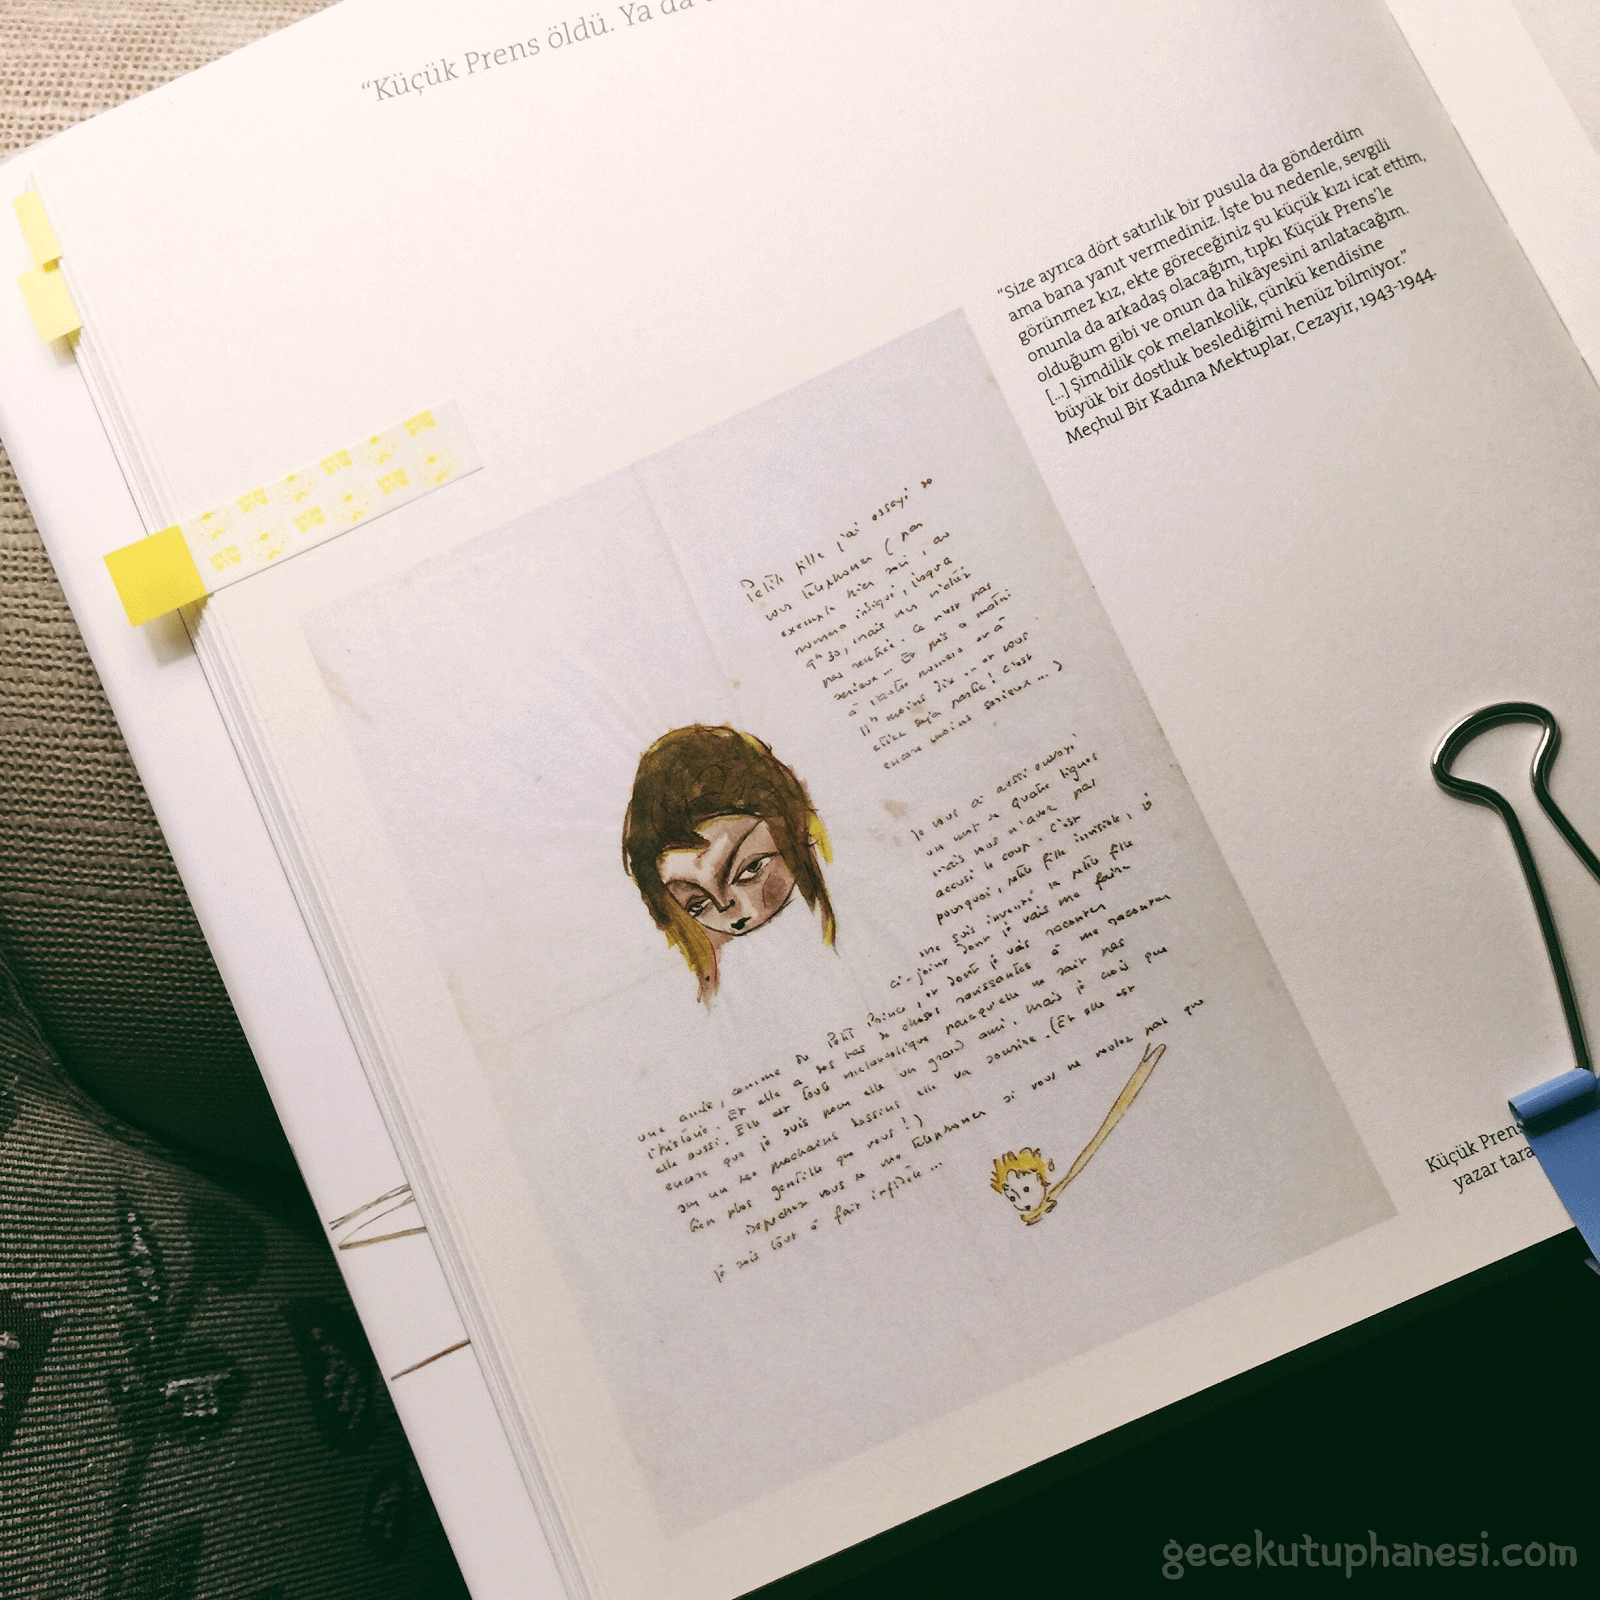 “Küçük Prens öldü. Ya da
“Size ayrıca dört satırlık bir pusula da gönderdim
ama bana yanıt vermediniz. İşte bu nedenle, sevgili
görünmez kız, ekte göreceğiniz şu küçük kızı icat ettim,
onunla da arkadaş olacağım, tıpkı Küçük Prens'le
olduğum gibi ve onun da hikâyesini anlatacağım.
[...] Şimdilik çok melankolik, çünkü kendisine
büyük bir dostluk beslediğimi henüz bilmiyor.”
Meçhul Bir Kadına Mektuplar, Cezayir, 1943-1944.
Petite fille j'ai essayé de
vous téléphoner (par
exemple hier soir, au
numéro indiqué, jusqu'à
9h 30, mais vous n'étiez
pas rentrée. Ce n'est pas
sérieux... Et puis ce matin
à l'autre numéro
11h moins dix — et vous
étiez déjà partie! C'est
encore moins sérieux...)
Je vous ai aussi envoyé
un mot de quatre lignes
mais vous n'avez pas
accusé le coup. C'est
pourquoi, petite fille invisible, je
me suis inventé la petite fille
ci-jointe dont je vais me faire
une amie, comme du Petit Prince, et dont je vais raconter
l'histoire. Et elle a des tas de choses ravissantes à me raconter
elle aussi. Elle est toute mélancolique parce qu'elle ne sait pas
encore que je suis pour elle un grand ami, mais je crois que
sur un des prochains dessins elle va sourire. (Et elle est
bien plus gentille que vous!)
Dépêchez vous de me téléphoner si vous ne voulez pas que
je sois tout à fait infidèle...
Küçük Prens
yazar tara
gecekutuphanesi.com